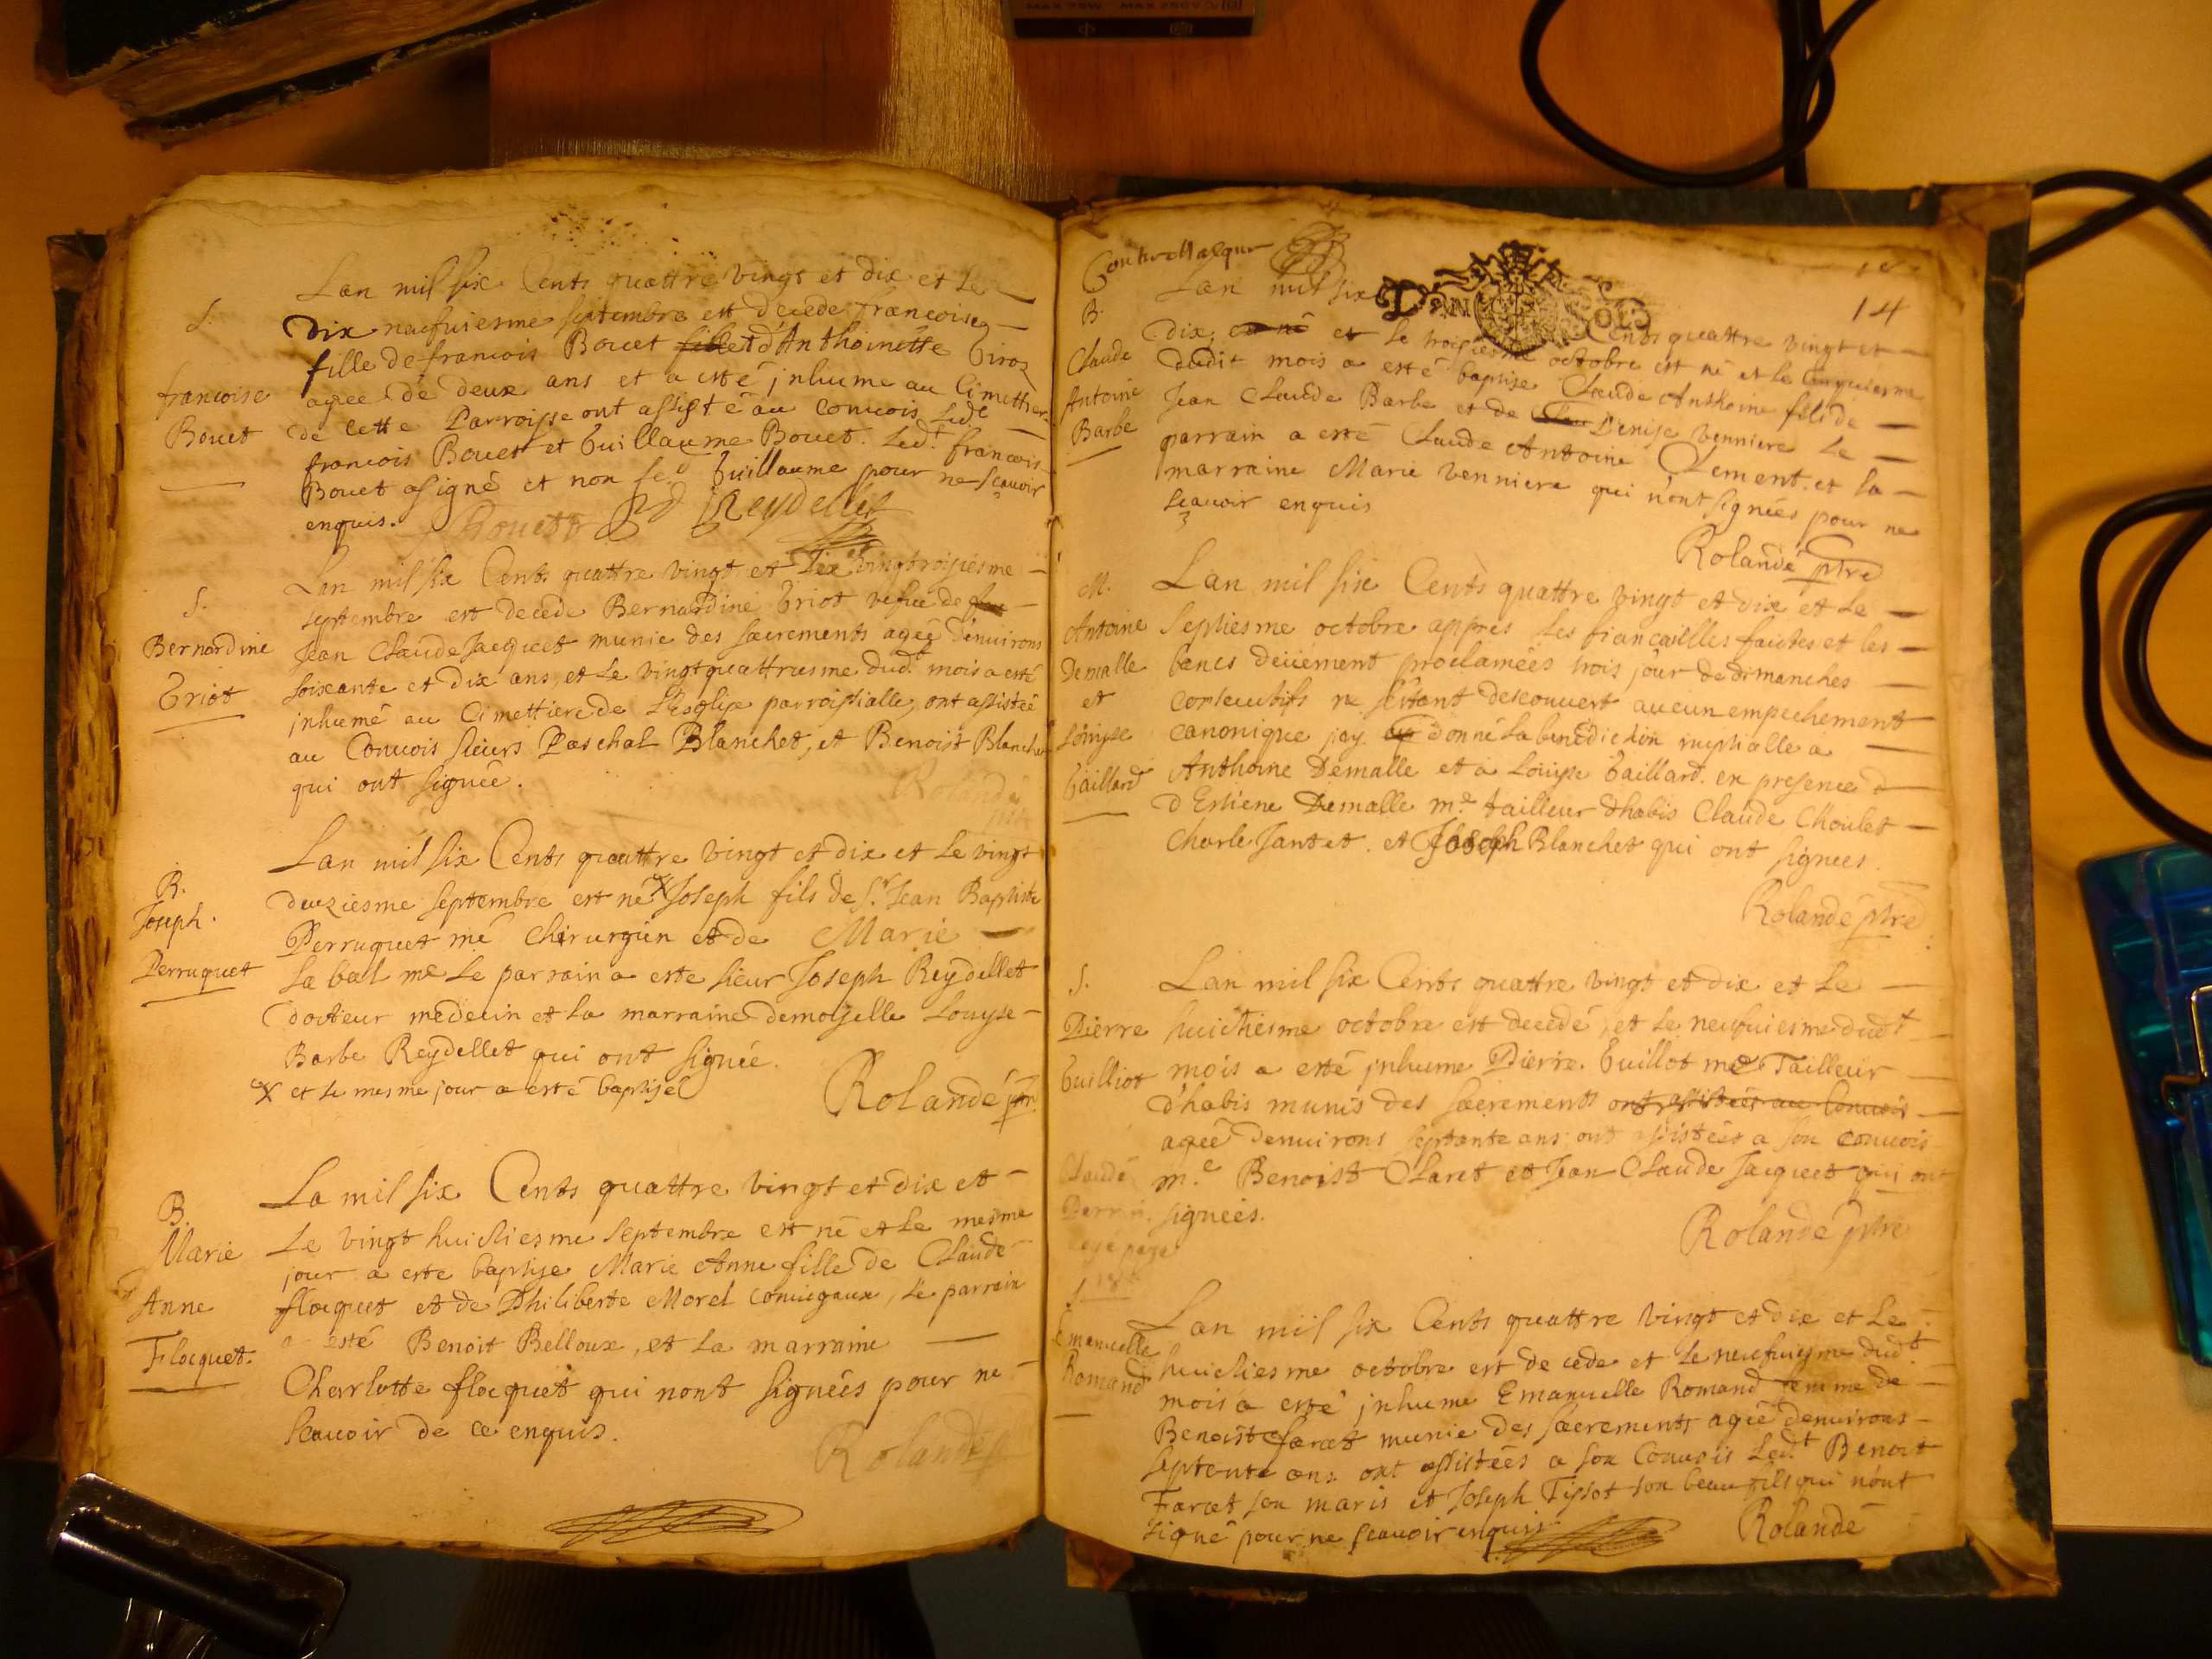 S.
francoise
Bouet
Lan mil six Cents quattre vingt et dix et Le
Dix neufuiesme septembre est decede francoise
fille de francois Bouet fille et d'Anthoinette
agee de deux ans et a esté jnhume au Cimettier
de Cette Parroisse ont assisté au conuois Led.
francois Bouet et Guillaume Bouet. Led.t francois
Bouet a signé et non led. Guillaume pour ne scauoir
enquis. Bouet Reydellet
S.
Bernardine
Griot
Lan mil six Cents quattre vingt et Dix et vingtroisiesme
septembre est decede Bernardine Griot vefue de
Jean Claude Jacquet munie des sacrements agée denuirons
soixante et dix ans, et Le vingtquattriesme dud.t mois a esté
jnhumé au Cimettiere de L'esglise parroissialle, ont assistée
au Conuois sieurs Paschal Blanchet, et Benoist Blanchet
qui ont signée.
Rolandé
B.
Joseph.
Perruquet
Lan mil six Cents quattre vingt et dix et Le vingt
deuziesme septembre est né X Joseph fils de S.r Jean Baptiste
Perruquet mé Chirurgien et de Marie
La bal me Le parrain a este sieur Joseph Reydellet
docteur medecin et La marraine demoiselle Louyse
Barbe Reydellet qui ont signée.
X et Le mesme jour a esté baptisé
Rolandé ptre
B.
Marie
Anne
Flocquet.
La mil six Cents quattre vingt et dix et
Le vingt huictiesme septembre est né et Le mesme
jour a este baptise Marie Anne fille de Claude
flocquet et de Philiberte Morel coniugaux, Le parrain
a esté Benoit Belloux, et La marraine
Charlotte flocquet qui nont signées pour ne
Scauoir de ce enquis.
Rolandé
14
B.
Claude
Antoine
Barbe
Lan mil six Cents quattre vingt et
Dix, et Le troisiesme octobre est né et Le Cinquiesme
dudit mois a esté baptise Claude Anthoine fils de
Jean Claude Barbe et de Denise Venniere Le
parrain a esté Claude Antoine Clement. et La
marraine Marie Venniere qui n'ont signées pour ne
scauoir enquis
Rolandé ptre
M.
Antoine
Demalle
et
Loüyse
Gaillard
Lan mil six Cents quattre vingt et dix et Le
Septiesme octobre appres Les fiancailles faictes et les
bancs deüement proclamées trois jour de dimanches
consecutifs ne sestant descouvert aucun empechement
canonique jay donné La benediction nuptialle a
Anthoine Demalle et a Loüyse Gaillard. en presence
d'Estiene Demalle m.e tailleur dhabis Claude Choulet
Charle Jantet. et Joseph Blanchet qui ont signees.
Rolandé ptre
S.
Pierre
Guilliot
Lan mil six Cents quattre vingt et dix et Le
huictiesme octobre est decedé, et Le neufuiesme dud.t
mois a esté jnhume Pierre. Guillot me Tailleur
d'habis munis des sacrements ont assistées au Conuois
ageé denuirons septante ans ont assistées a son conuois
m.e Benoist Claret et Jean Claude Jacquet qui ont
signees.
Rolandé ptre
Claude
Perrin.
page
S
Emanuelle
Romand
Lan mil six Cents quattre vingt et dix et Le
huictiesme octobre est decede et Le neufuiesme dud.t
mois a esté jnhume Emanuelle Romand femme de
Benoist Faret munie des sacrements ageé denuirons
septente ans ont assistées a son Conuois Led.t Benoit
Faret son maris et Joseph Tissot son beau fils qui n'ont
signé pour ne scauoir enquis
Rolandé